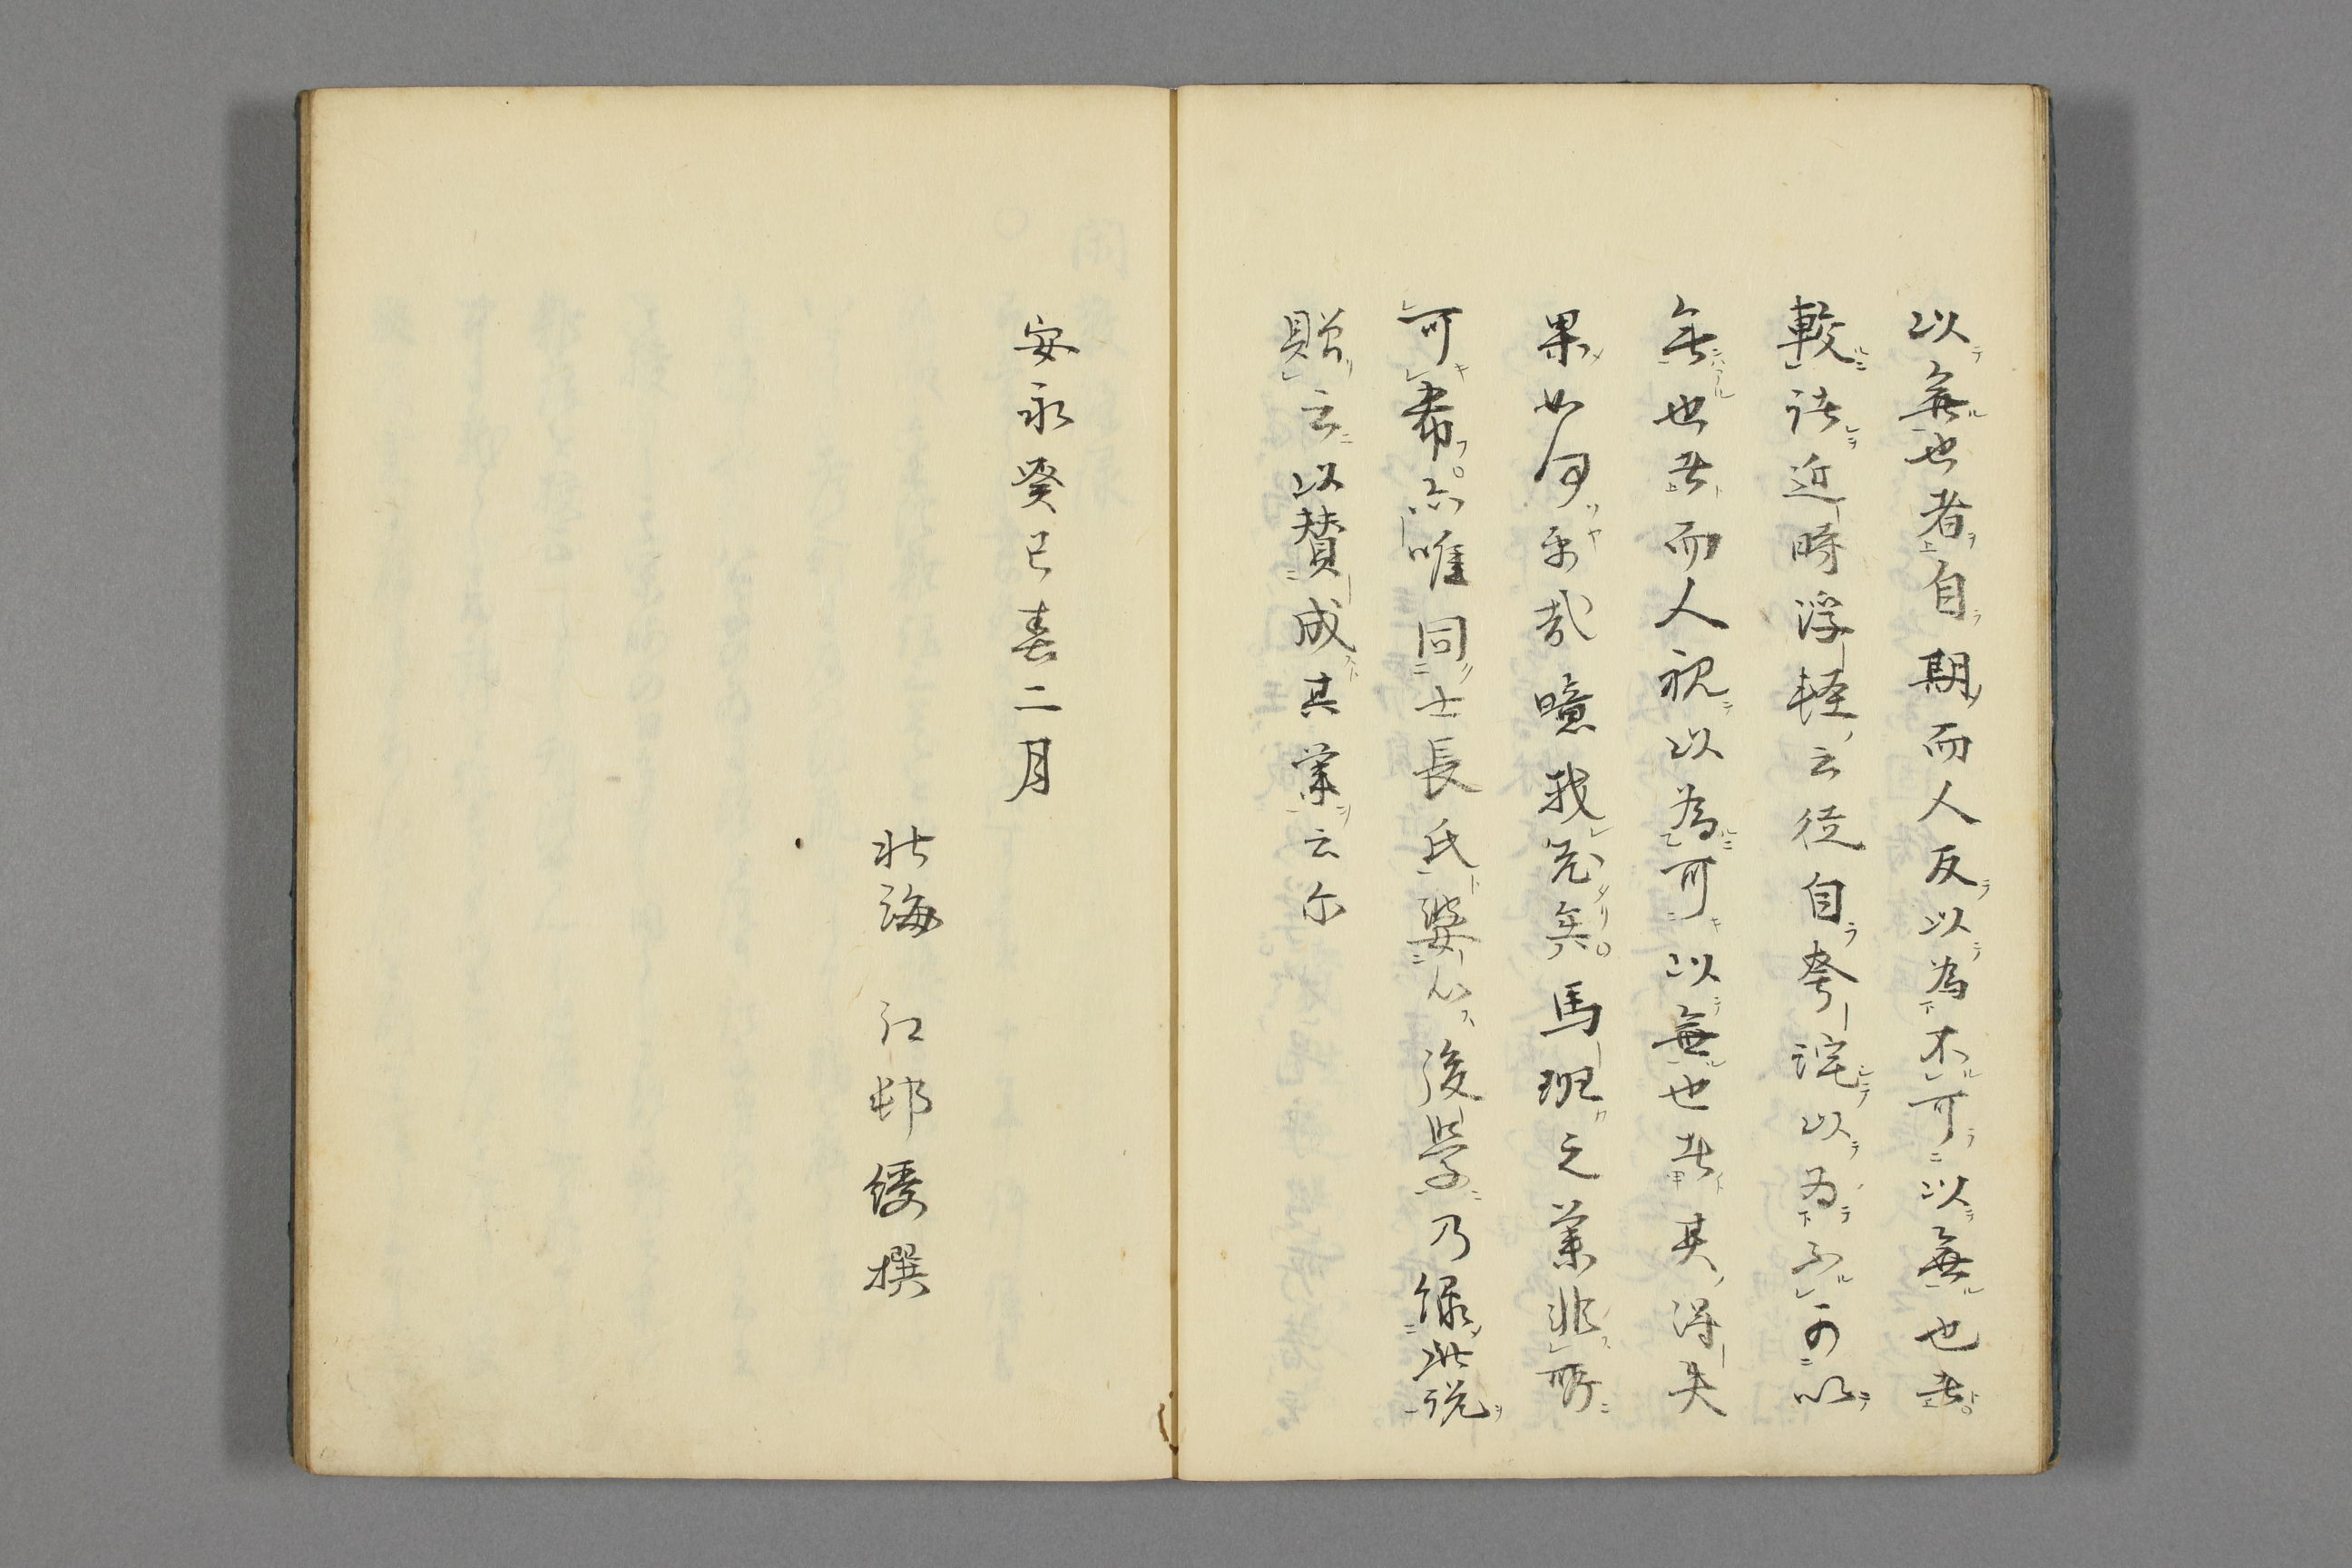 以無也者自期而人反以為不可以無也者
較諸近時浮軽之徒自夸詫以為不可以
無也者而人視以為可以無也者其得失
果如何乎哉噫我老矣馬班之業非所
可希亦唯同士長氏婆心後学乃録此説
贈之以賛成其業云尓
安永癸巳春二月
北海 江邨綬撰